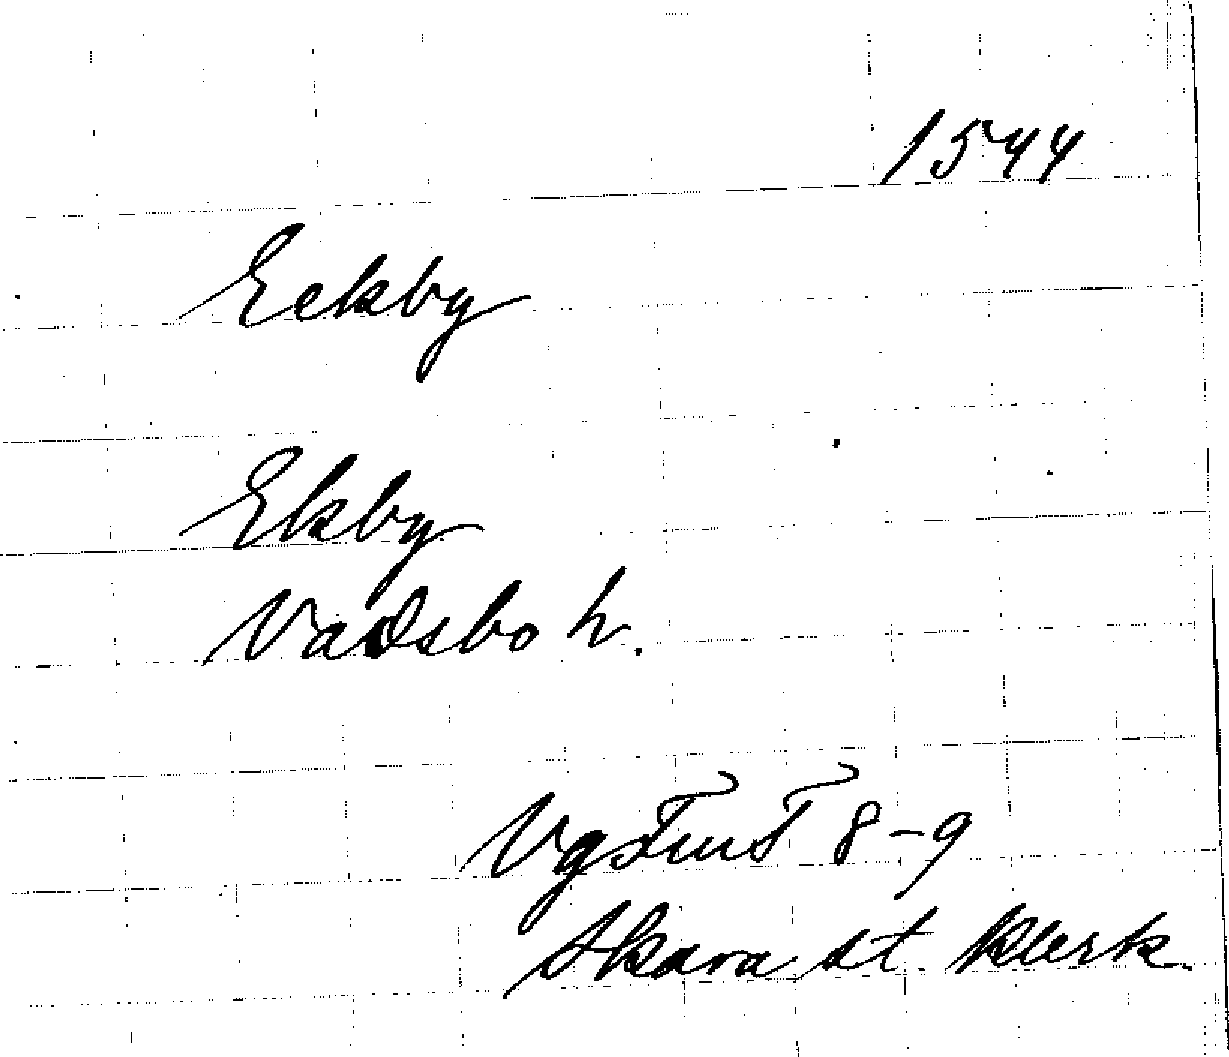 1544
Eekby
Ekby
Vadsbo h.
VgFmT 8-9
Skara st. klerk.